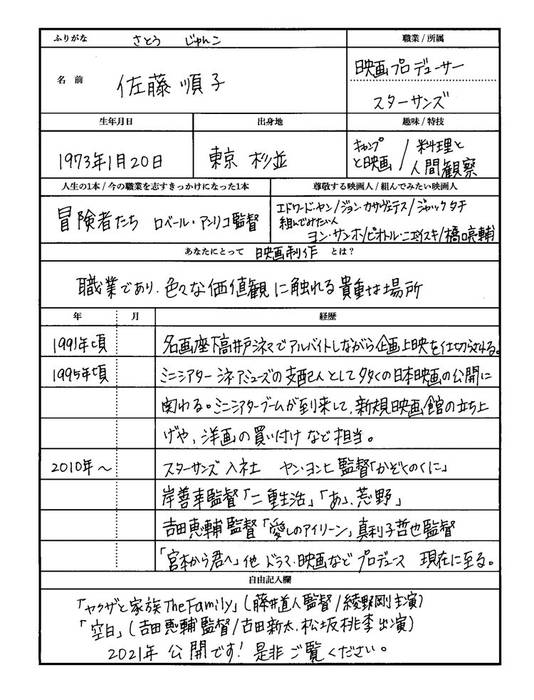 ふりがな さとう じゅんこ
名 前 佐藤 順子
職業 / 所属
映画プロデューサー
スターサンズ
生年月日
1973年1月20日
出身地
東京 杉並
趣味 / 特技
キャンプと映画 / 料理と人間観察
人生の1本 / 今の職業を志すきっかけになった1本
冒険者たち ロベール・アンリコ監督
尊敬する映画人 / 組んでみたい映画人
エドワード・ヤン / ジョン・カサヴェテス / ジャック タチ
組んでみたい人
ヨン・サンホ / ピオトル・ニエミイスキ / 橋口亮輔
あなたにとって 映画制作 とは?
職業であり、色々な価値観に触れる貴重な場所
年 月 経歴
1991年頃 名画座下高井戸シネマでアルバイトしながら企画上映を仕切らされる。
1995年頃 ミニシアター シネ・アミューズの支配人として多くの日本映画の公開に
関わる。ミニシアターブームが到来して、新規映画館の立ち上
げや、洋画の買い付けなど担当。
2010年〜 スターサンズ入社 ヤン・ヨンヒ監督「かぞくのくに」
岸善幸監督「二重生活」「あゝ、荒野」
吉田恵輔監督「愛しのアイリーン」真利子哲也監督
「宮本から君へ」他 ドラマ、映画など プロデュース 現在に至る。
自由記入欄
「ヤクザと家族 The Family」(藤井道人監督/綾野剛主演)
「空白」(吉田恵輔監督/古田新太、松坂桃李出演)
2021年 公開です!是非ご覧ください。